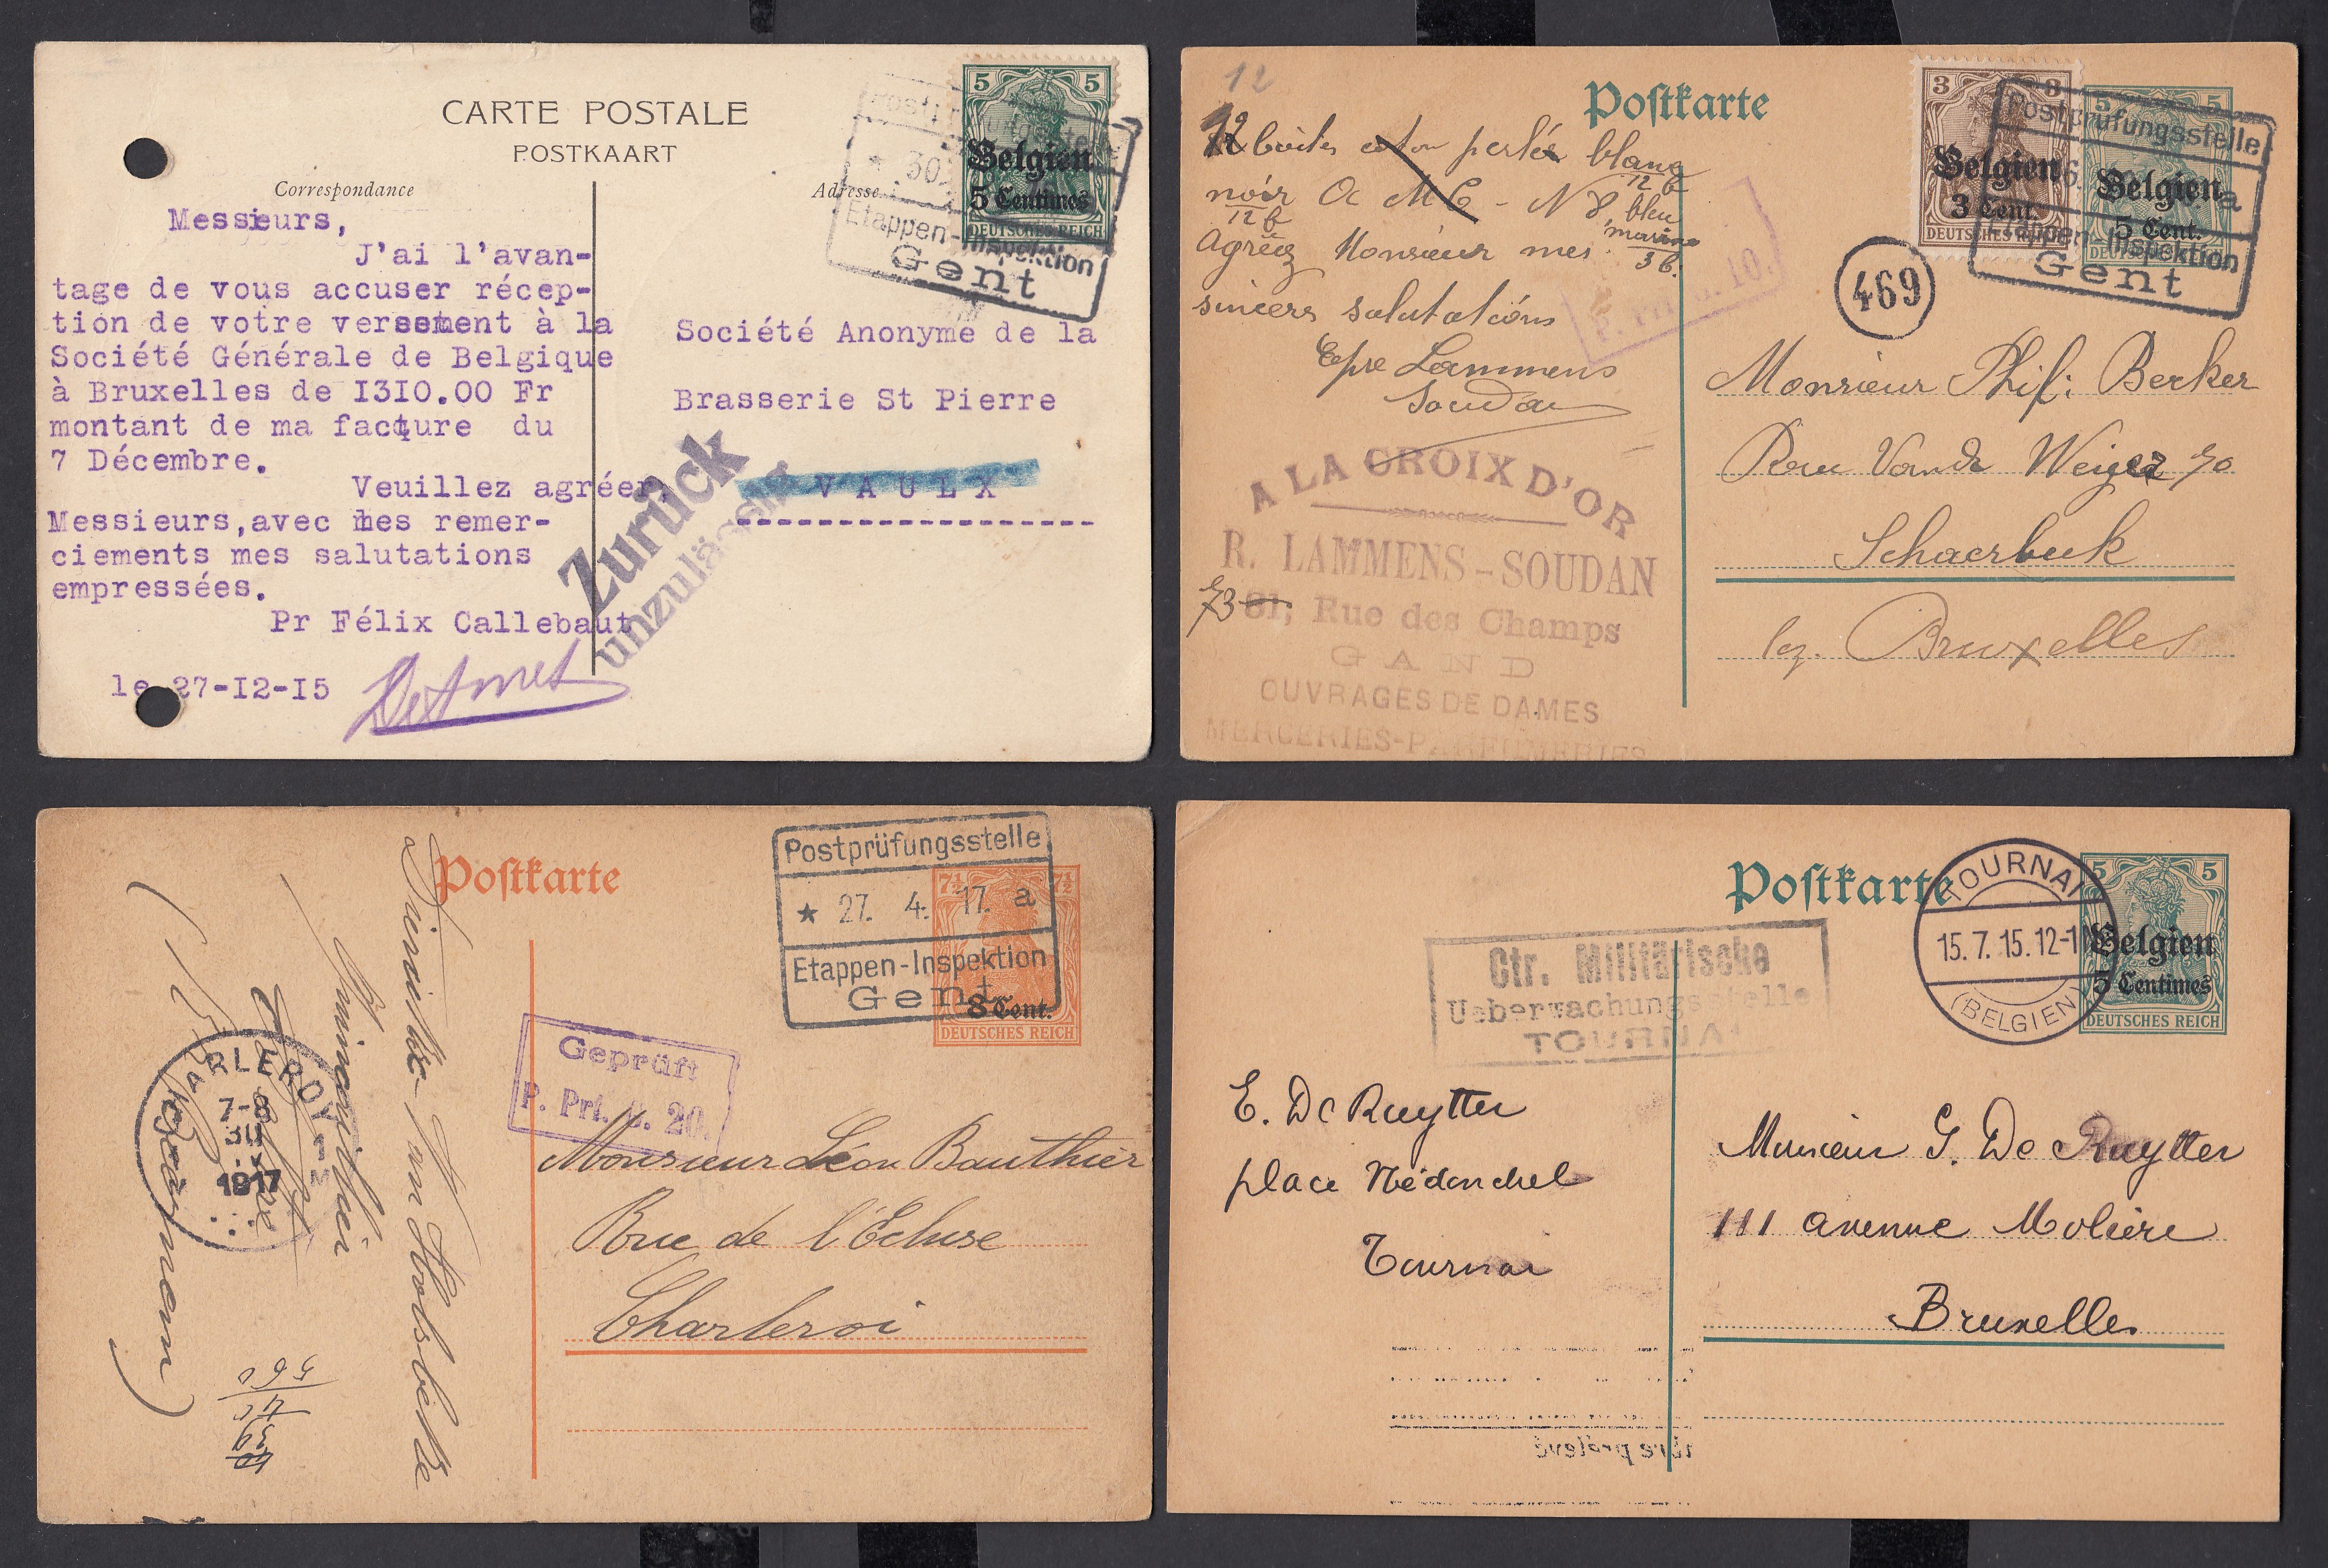 CARTE POSTALE
POSTKAART
Correspondance
Adresse
5 5
Belgien
5 Centimes
DEUTSCHES REICH
30
Etappen-Inspektion
Gent
Messieurs,
J'ai l'avan-
tage de vous accuser récep-
tion de votre versement à la
Société Générale de Belgique
à Bruxelles de I3I0.00 Fr
montant de ma facture du
7 Décembre.
Veuillez agréer,
Messieurs,avec mes remer-
ciements mes salutations
empressées.
Pr Félix Callebaut
le 27-I2-I5
Société Anonyme de la
Brasserie St Pierre
VAULX
Zurück
unzulässig
Postkarte
12
12 boites coton perlés blanc
12 b
noir
12 b
N 8 bleu
marine
3 b.
Agréez Monsieur mes
sincers salutations
Lammens
Soudan
A LA CROIX D'OR
R. LAMMENS-SOUDAN
73 61, Rue des Champs
GAND
OUVRAGES DE DAMES
MERCERIES-PARFUMERIES
3 3
Belgien
3 Cent.
5 5
Belgien
5 Cent.
Postprüfungsstelle
Etappen-Inspektion
Gent
10.
469
Monsieur Phil: Becker
Rue Vande Weyer 70
Schaerbeek
lez. Bruxelles
Postkarte
Postprüfungsstelle
* 27. 4. 17. a
Etappen-Inspektion
Gent
7½ 7½
8 Cent.
DEUTSCHES REICH
Geprüft
P. Prf. S. 20.
CHARLEROY
7-8
30
1917
Monsieur Léon Bauthier
Rue de l'Ecluse
Charleroi
560
40
39
Postkarte
TOURNAI
15.7.15.12-1
(BELGIEN)
5 5
Belgien
5 Centimes
DEUTSCHES REICH
Ctr. Militärische
Ueberwachungsstelle
TOURNAI
E. De Ruytter
place Nédonchel
Tournai
Monsieur G. De Ruytter
111 avenue Molière
Bruxelles